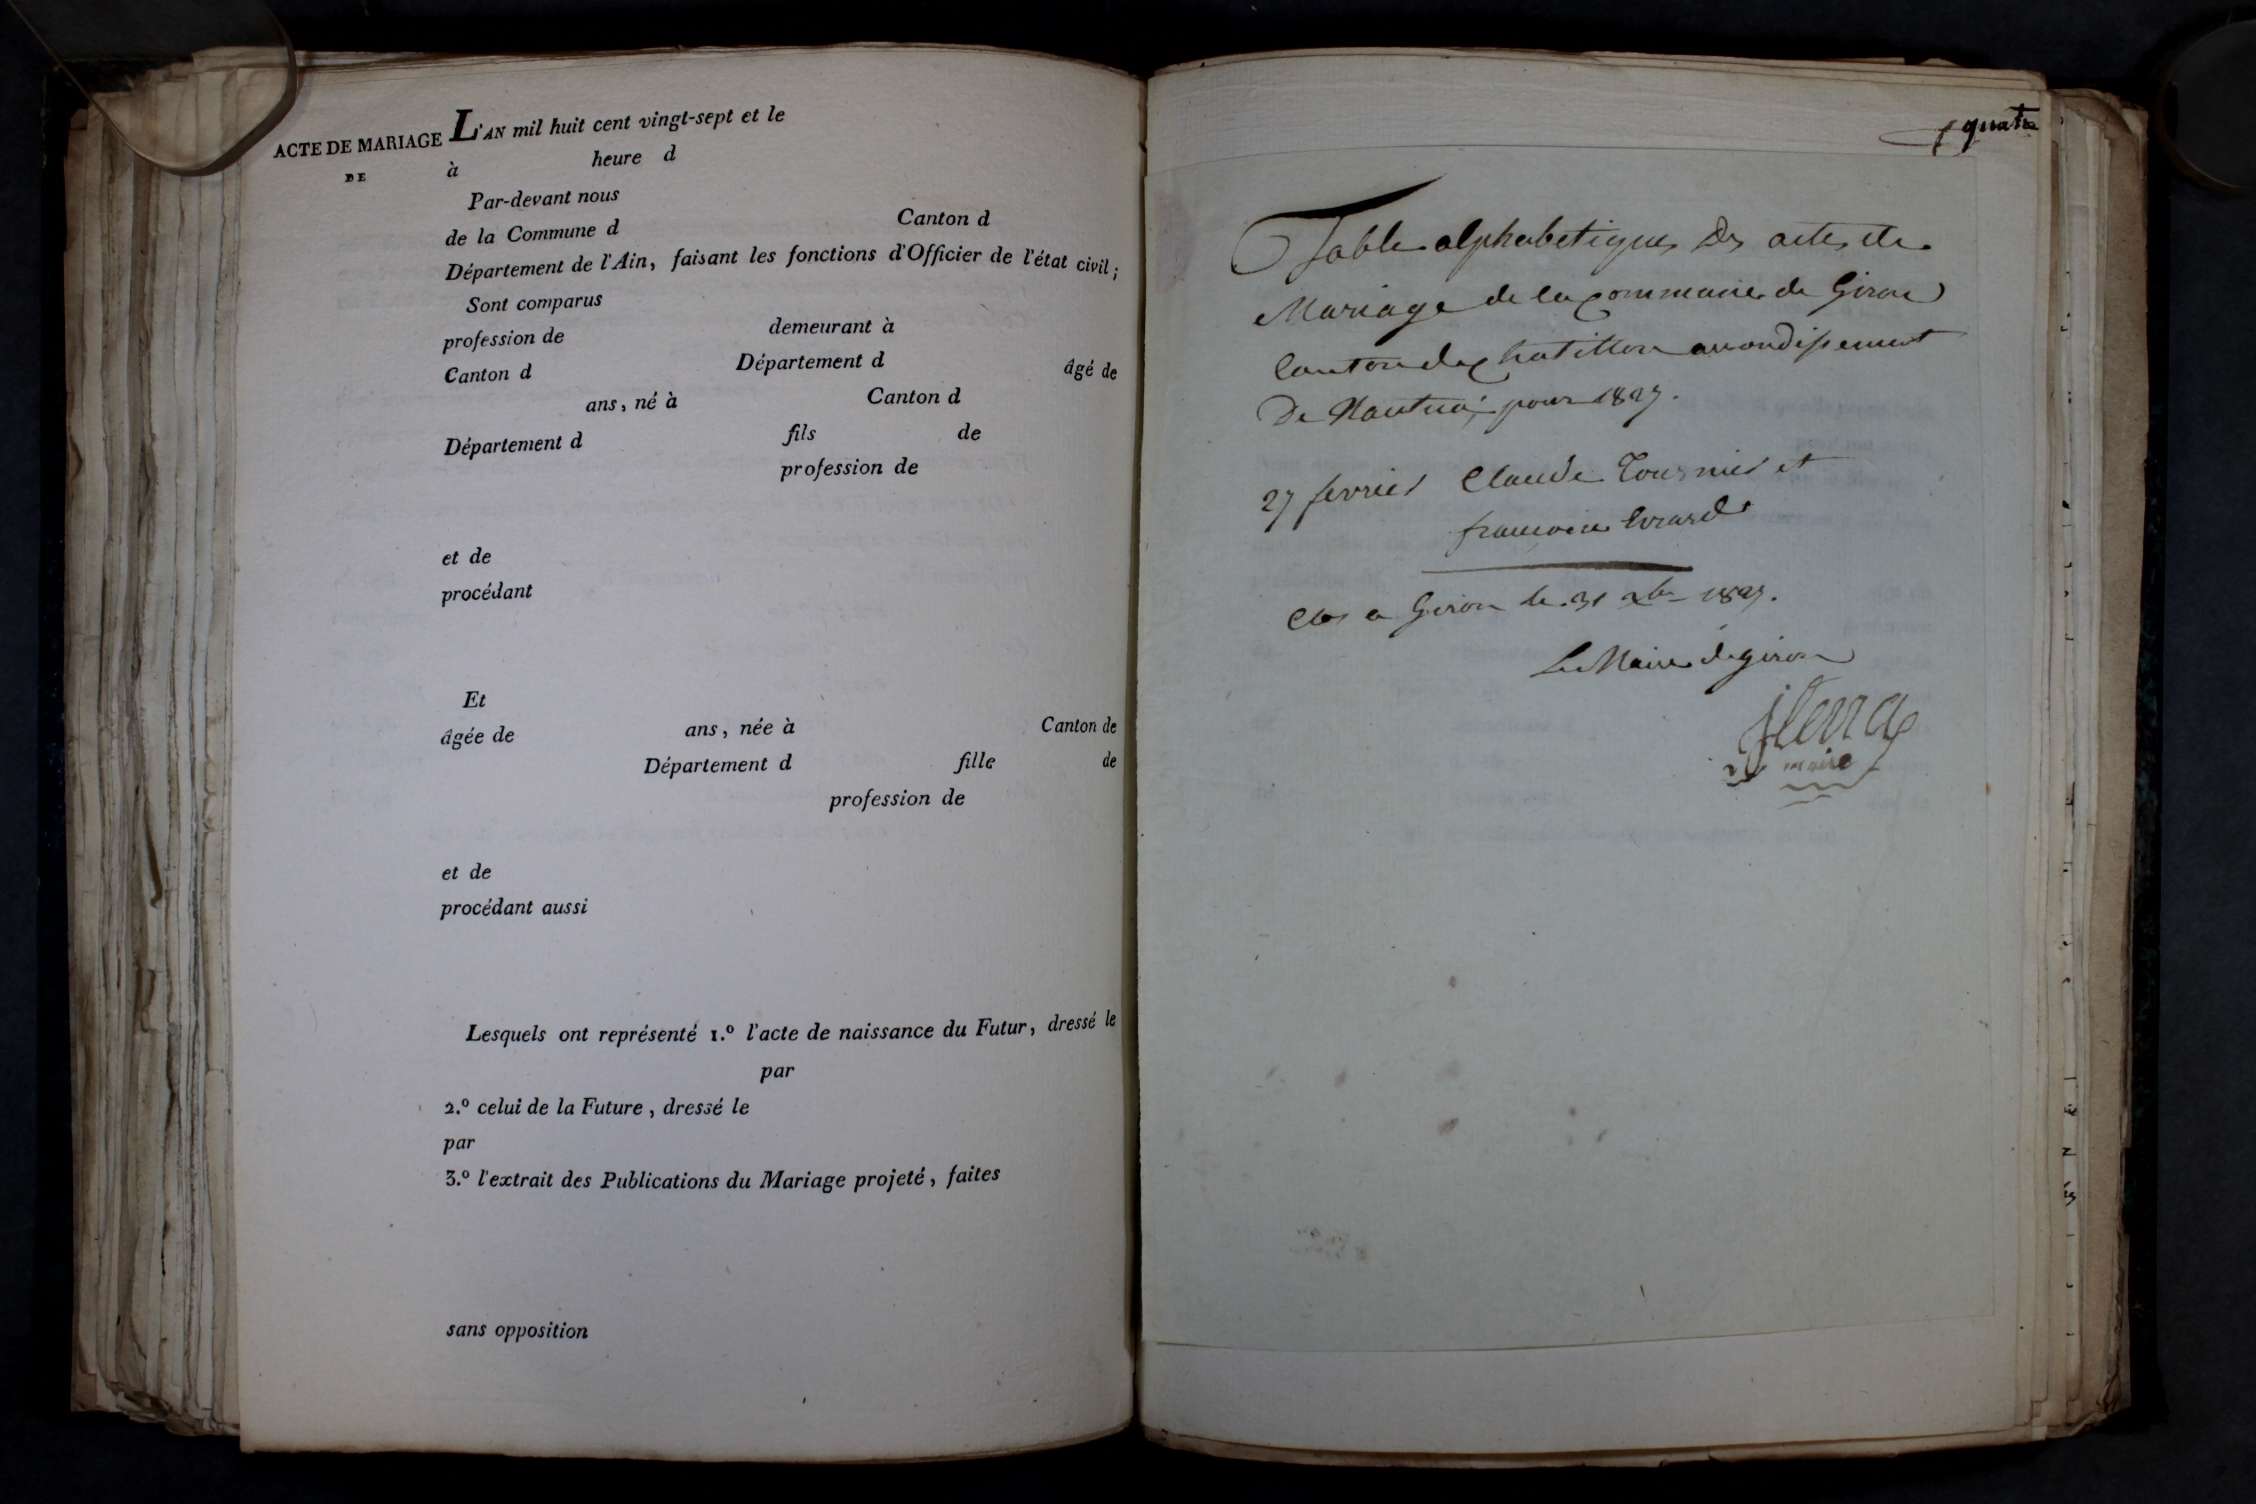 ACTE DE MARIAGE
DE
L'AN mil huit cent vingt-sept et le
à heure d
Par-devant nous
de la Commune d Canton d
Département de l'Ain, faisant les fonctions d'Officier de l'état civil;
Sont comparus
profession de demeurant à
Canton d Département d âgé de
ans, né à Canton d
Département d fils de
profession de
et de
procédant
Et
âgée de ans, née à Canton de
Département d fille de
profession de
et de
procédant aussi
Lesquels ont représenté 1.º l'acte de naissance du Futur, dressé le
par
2.º celui de la Future, dressé le
par
3.º l'extrait des Publications du Mariage projeté, faites
sans opposition
quatre
Table alphabetique des actes de
Mariage de la commune de Giron
Canton de chatillon arrondissement
De Nantua pour 1827.
27 fevrier Claude Tournier et
francoise Evrard
Clos a Giron le 31 xbre 1827.
Le Maire de giron
maire